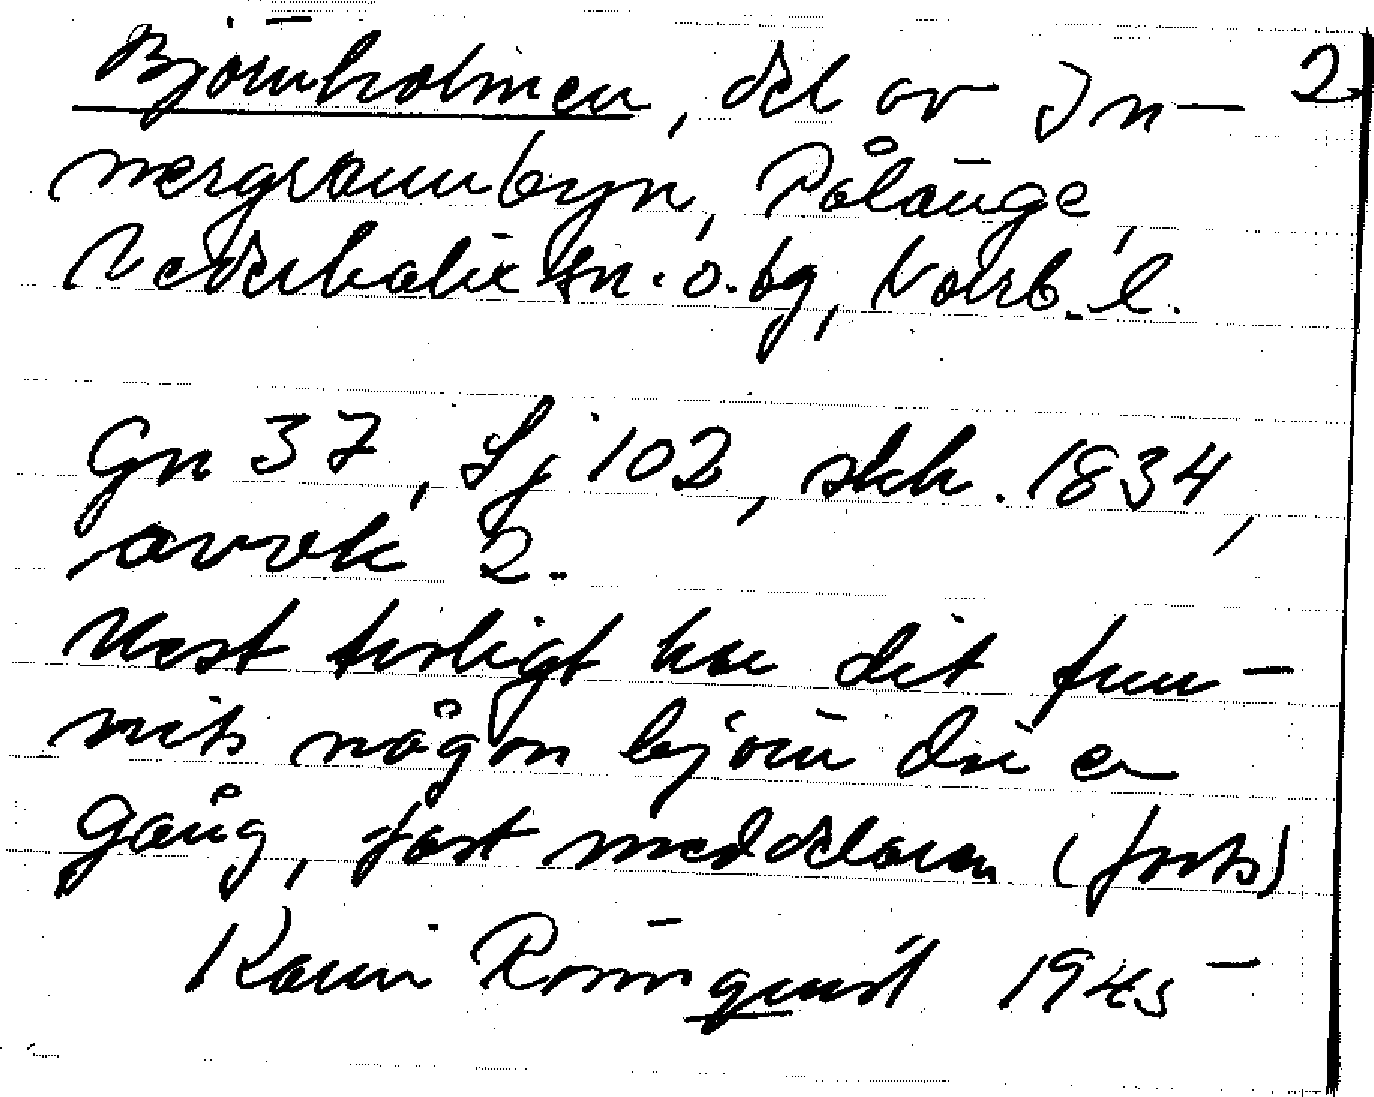 Björnholmen, del av In- 2
nergrannbyn, Pålänge,
Nederkalix sn. o. bg, Norrb. l.
Gn 37, Lj 102, skh. 1834,
avvk 2.
Mest troligt har det fun-
nits någon björn där en
gång, fast meddelaren (forts)
Karin Rönnquist 1945